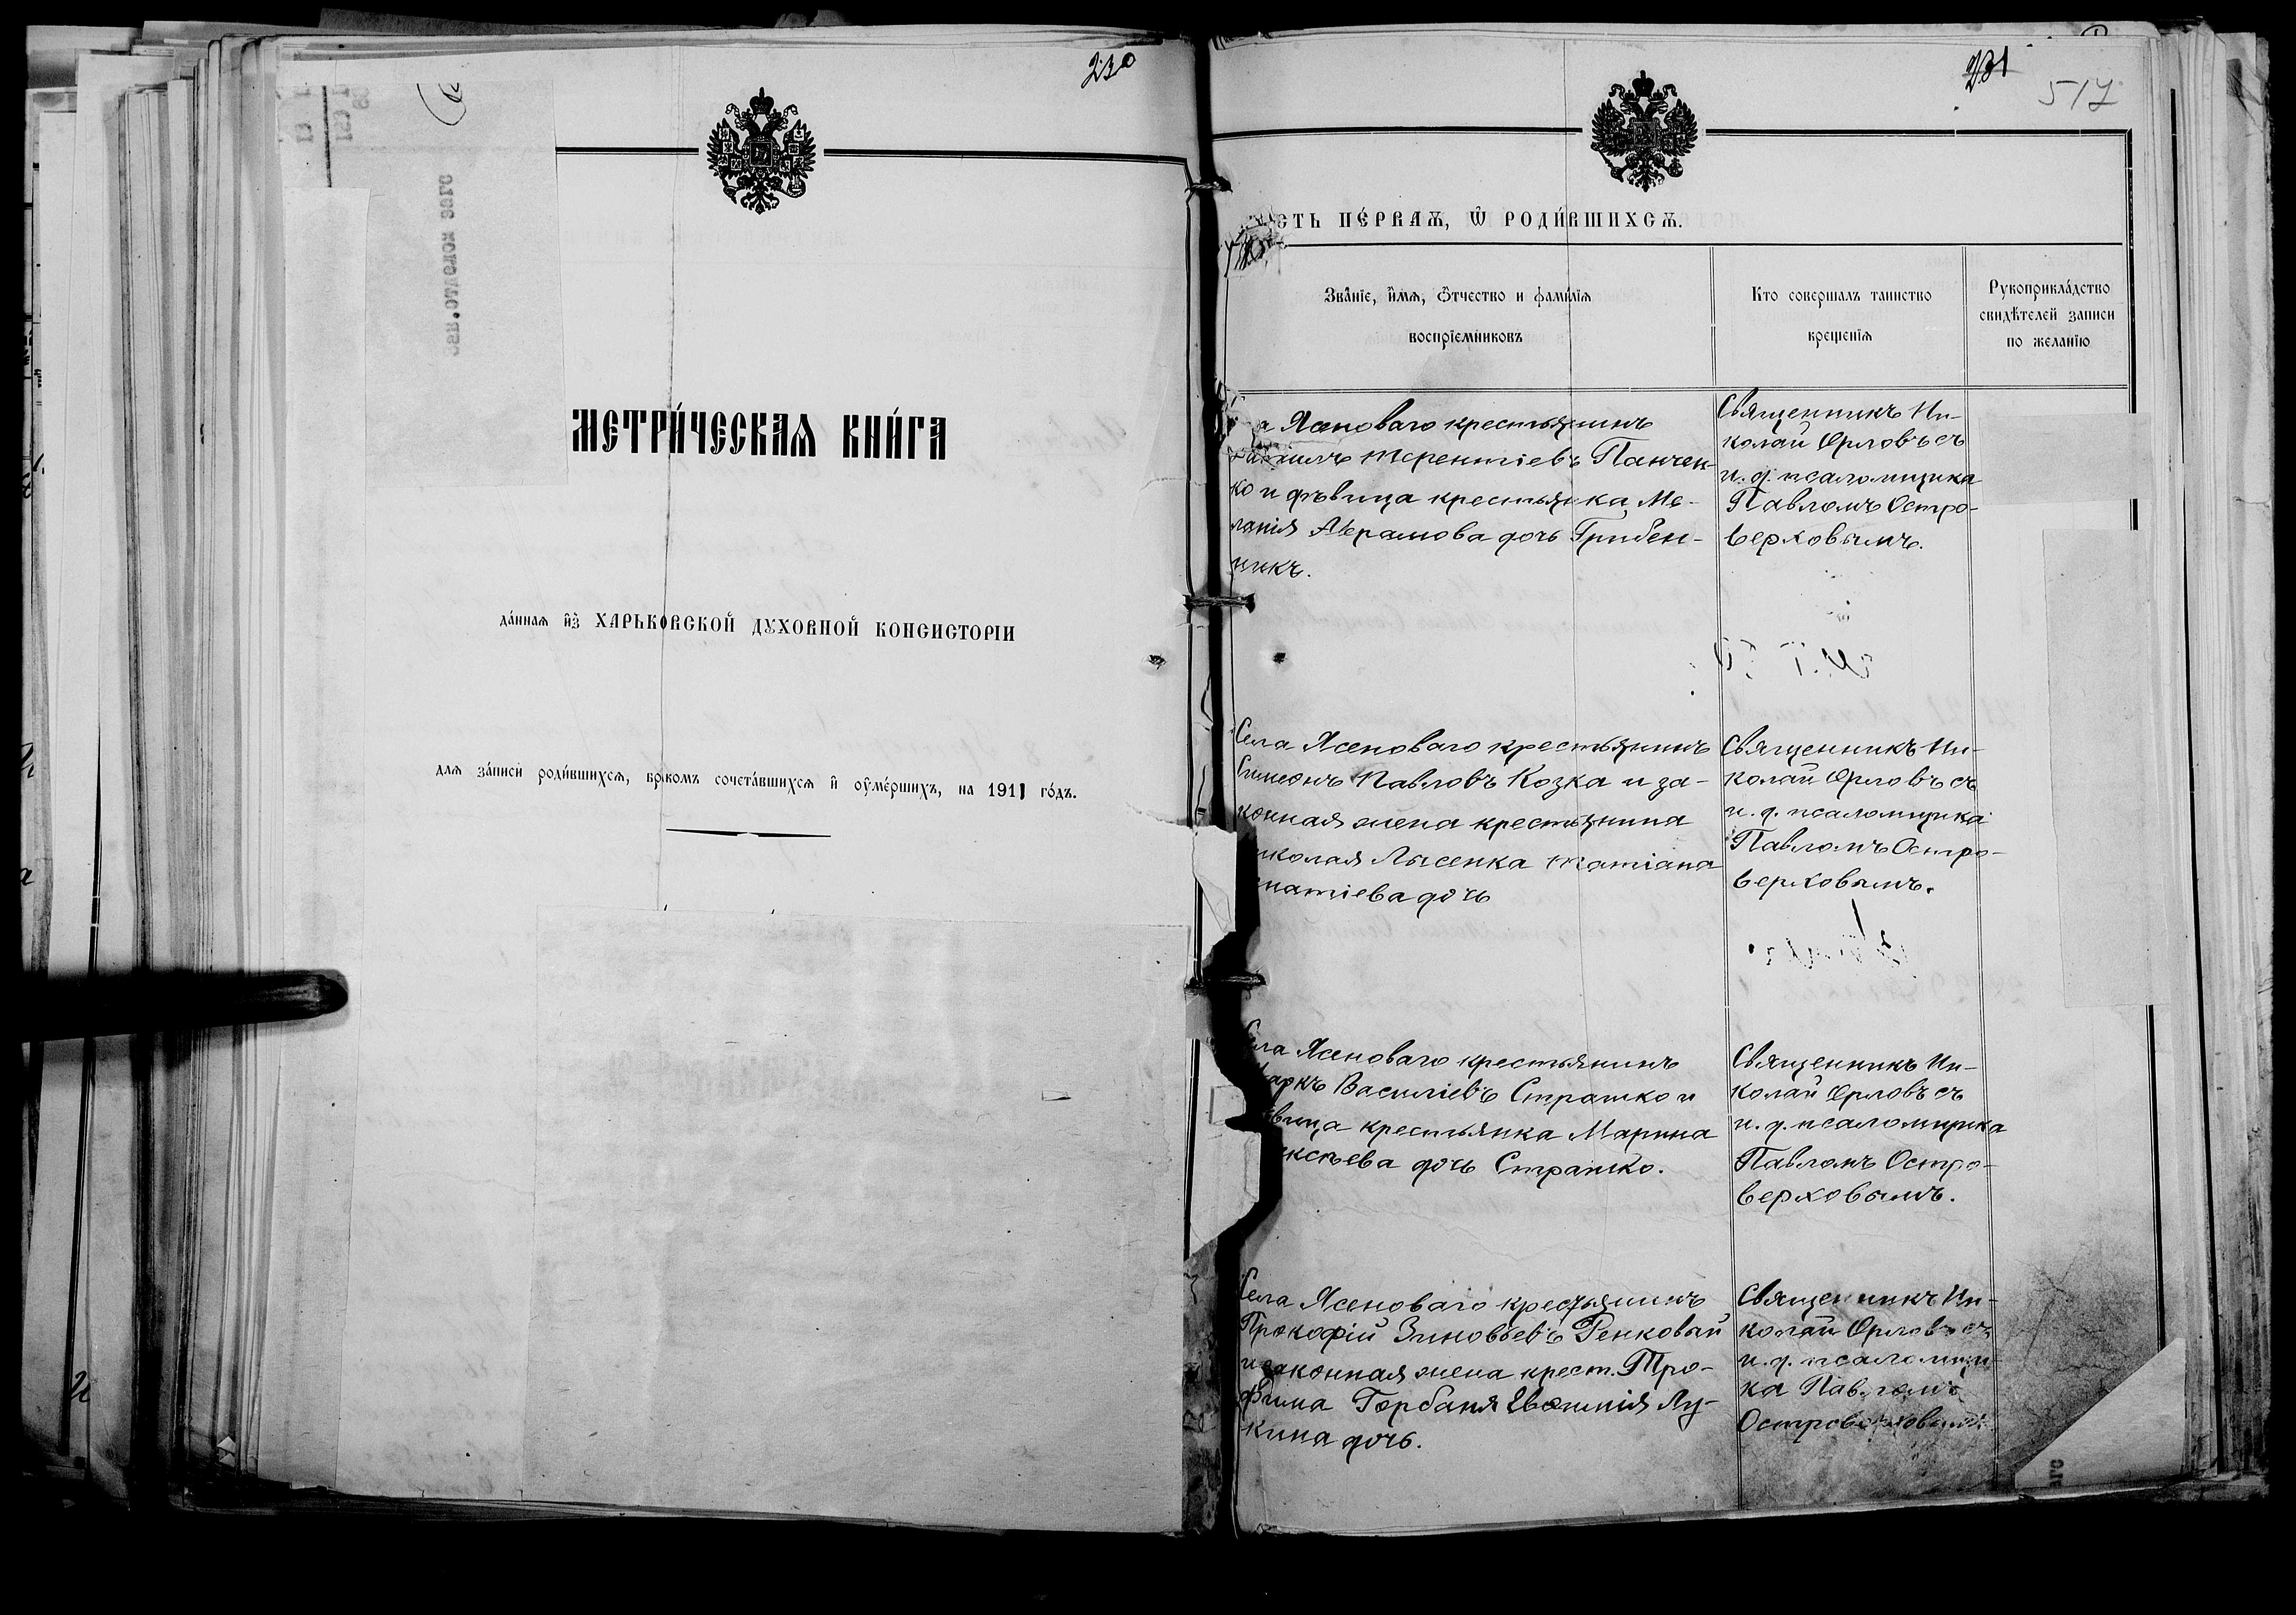 230
МЕТРИ́ЧЕСКАѦ КНИ́ГА
да́ннаѧ и҆з̾ ХАРЬКОВСКОЙ ДУХОВНОЙ КОНСИСТОРІИ
для за́писи роди́вшихсѧ, бра́комъ сочета́вшихсѧ и҆ оу҆ме́ршихъ, на 1911 го́дъ.
231
517
СТЬ ПЕ́РВАѦ, Ѿ РОДИ́ВШИХСѦ.
Зва́нїе, и҆́мѧ, ѻ҆́тчество и фами́лїѧ
воспрїе́мниковъ
Кто совершалъ таинство
крещенїѧ
Рукоприкла́дство
свидѣ́телей записи
по жела́нїю
Ясеноваго крестьянинъ
Терентіевъ Панчен-
ко и дѣвица крестьянка Ме-
ланія Аврамова дочь Грибен-
никъ.
Священникъ Ни-
колай Орловъ съ
и. д. псаломщика
Павломъ Остро-
верховымъ.
Села Ясеноваго крестьянинъ
Симеонъ Павловъ Козка и за-
конная жена крестьянина
иколая Лысенка Татіана
натіева дочь
Священникъ Ни-
колай Орловъ съ
и. д. псаломщика
Павломъ Остро-
верховымъ.
Села Ясеноваго крестьянинъ
Маркъ Василіевъ Страшко и
вица крестьянка Марина
ксѣева дочь Страшко.
Священникъ Ни-
колай Орловъ съ
и. д. псаломщика
Павломъ Остро-
верховымъ.
Села Ясеноваго крестьянинъ
Прокофій Зиновьевъ Ренковый
и законная жена крест. Тро-
фима Горбаня Евфимія Лу-
кина дочь.
Священникъ Ни-
колай Орловъ съ
и. д. псаломщи-
ка Павломъ
Островерховымъ.